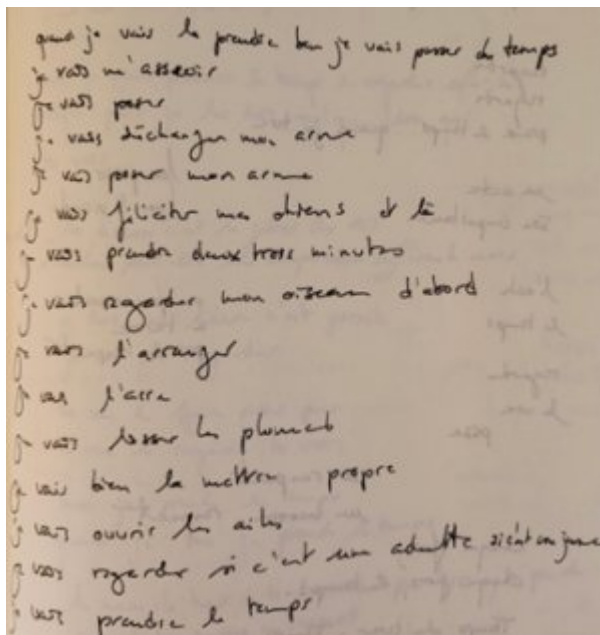 quand je vais la prendre ben je vais passer du temps
je vais m'asseoir
je vais poser
je vais décharger mon arme
je vais poser mon arme
je vais féliciter mes chiens et là
je vais prendre deux trois minutes
je vais regarder mon oiseau d'abord
je vais l'arranger
je vais
je vais lisser les plumes
je vais bien la mettre propre
je vais ouvrir les ailes
je vais regarder si c'est une adulte si c'est un jeune
je vais prendre le temps